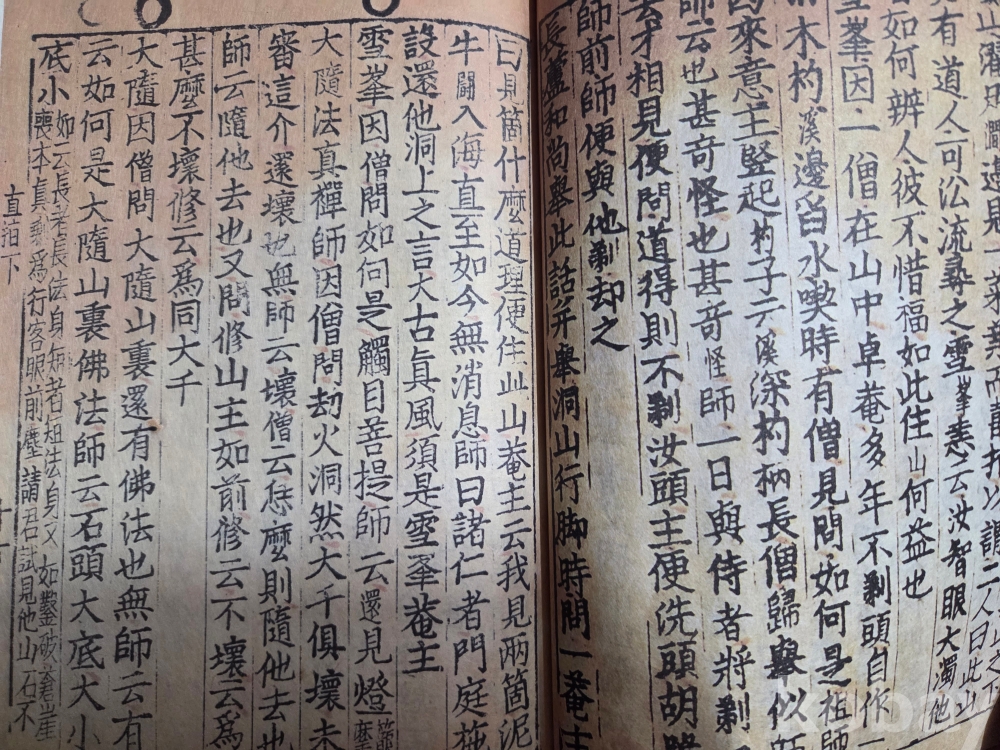 山濯足澗邊見一菜葉而
見有道人可訟流尋之雪峯恚云汝智眼大濁他
日如何辨人彼不惜福如此住山何益也
雪峯因一僧在山中卓菴多年不剃頭自作
木杓溪邊舀水喫時有僧見問如何是祖師
西來意主竪起杓子云溪深杓柄長僧歸舉似
師云也甚奇怪也甚奇怪師一日與侍者將剃
去才相見便問道得則不剃汝頭主便洗頭胡跪
師前師便與他剃却之
長蘆和尚舉此話并舉洞山行脚時問一菴主
曰見箇什麼道理便住此山菴主云我見兩箇泥
牛鬪入海直至如今無消息師曰諸仁者門庭施
設還他洞上之言大古真風須是雪峯菴主
雪峯因僧問如何是觸目菩提師云還見燈籠麼
大隨法真禪師因僧問劫火洞然大千俱壞未
審這介還壞也無師云壞僧云恁麼則隨他去也
師云隨他去也又問修山主如前修云不壞云爲
甚麼不壞修云爲同大千
大隨因僧問大隨山裏還有佛法也無師云有
云如何是大隨山裏佛法師云石頭大底大小
底小
如云長者長法身短者短法身又如鑿破蒼崖
喪本真剩爲行客眼前塵請君試見他山石不
直指下